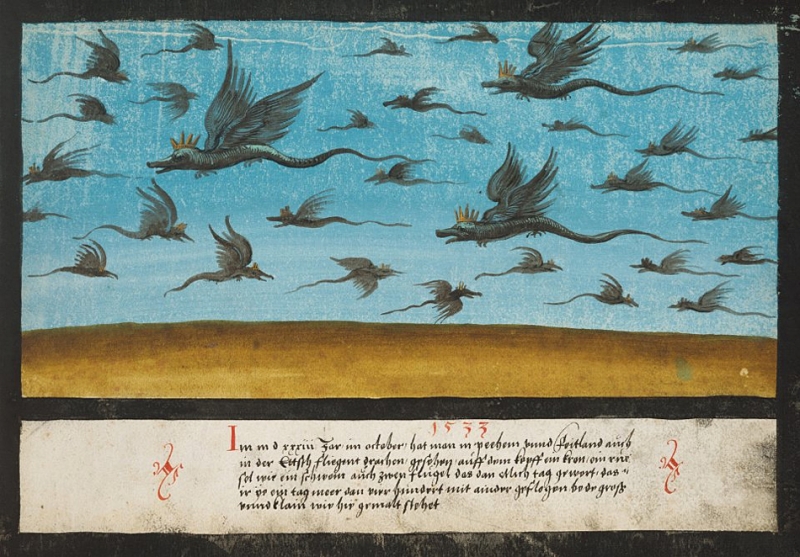 1533
Im m d xxxiii Jar im october hat man in pechem vnnd Voitland auch
in der fliegent drachen gesehen auff dem kopff ein kron ein rüe
sel wie ein schwein auch zwen flügel das dan etlich tag gewert das
ir ein tag meer dan vier hundert mit ainder geflohen beder groß
vnnd klain wie hie gemalt stehet